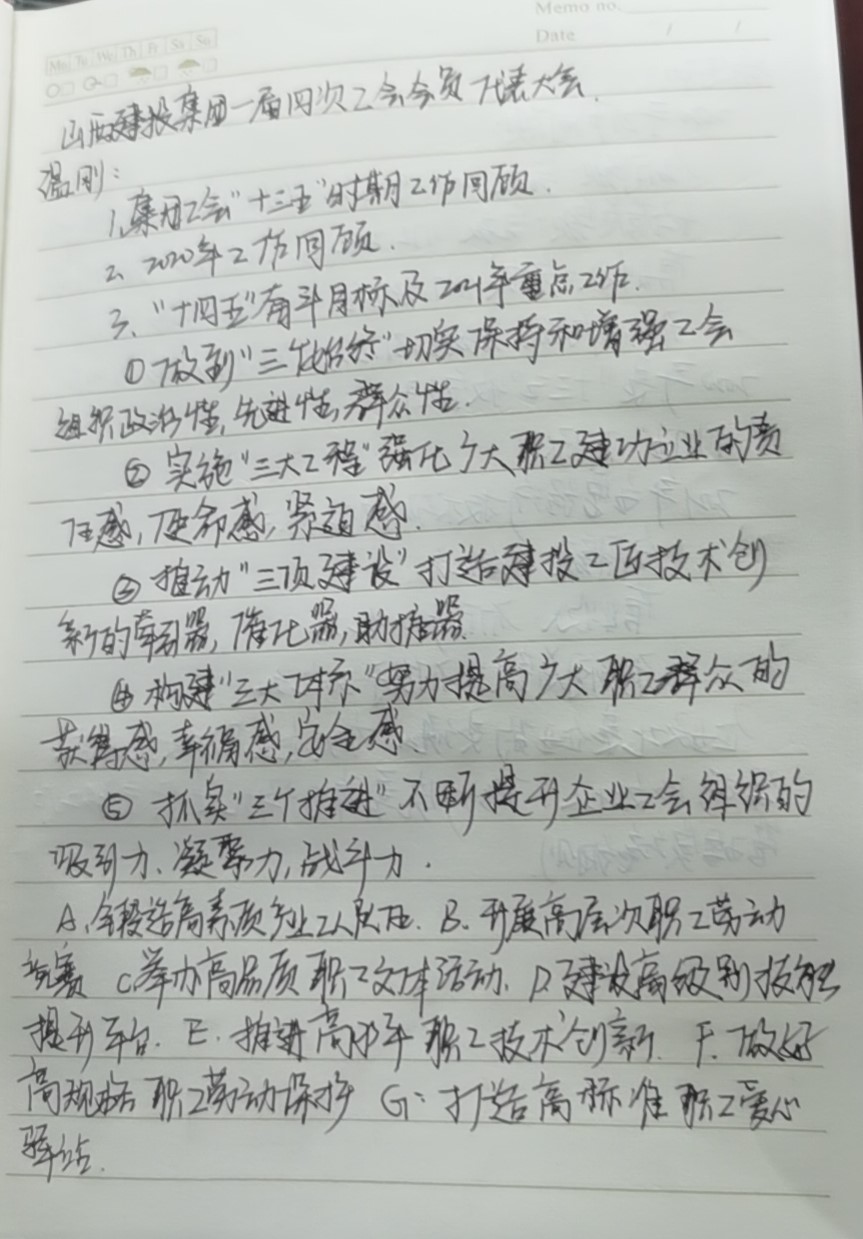 Memo no.
Mo Tu We Th Fr Sa Su
Date / /
山西建投集团一届四次工会会员代表大会.
温刚:
1. 集团工会"十三五"时期工作回顾.
2. 2020年工作回顾.
3. "十四五"奋斗目标及2021年重点工作.
① 做到"三个始终"切实保持和增强工会
组织政治性,先进性,群众性.
② 实施"三大工程"强化广大职工建功立业的责
任感,使命感,紧迫感.
③ 推动"三项建设"打造建投工匠技术创
新的牵引器,催化器,助推器.
④ 构建"三大体系"努力提高广大职工群众的
获得感,幸福感,安全感.
⑤ 抓实"三个推进"不断提升企业工会组织的
吸引力、凝聚力,战斗力.
A、造高素质产业工人队伍. B. 开展高层次职工劳动
竞赛 C举办高品质职工文体活动. D.建设高级别技能
提升平台. E. 推进高水平职工技术创新. F. 做好
高规格职工劳动保护 G: 打造高标准职工爱心
驿站.